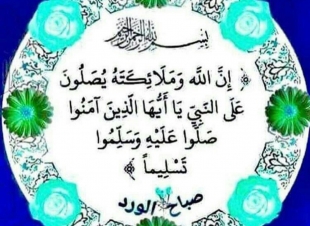 بسم الله الرحمن الرحيم
﴿ إِنَّ اللَّه وَمَلَائِكَتَهُ يُصَلُّونَ
عَلَى النَّبِيِّ يَا أَيُّهَا الَّذِينَ آمَنُوا
صَلُّوا عَلَيْهِ وَسَلِّمُوا
تَسْلِيماً ﴾
صباح الورد